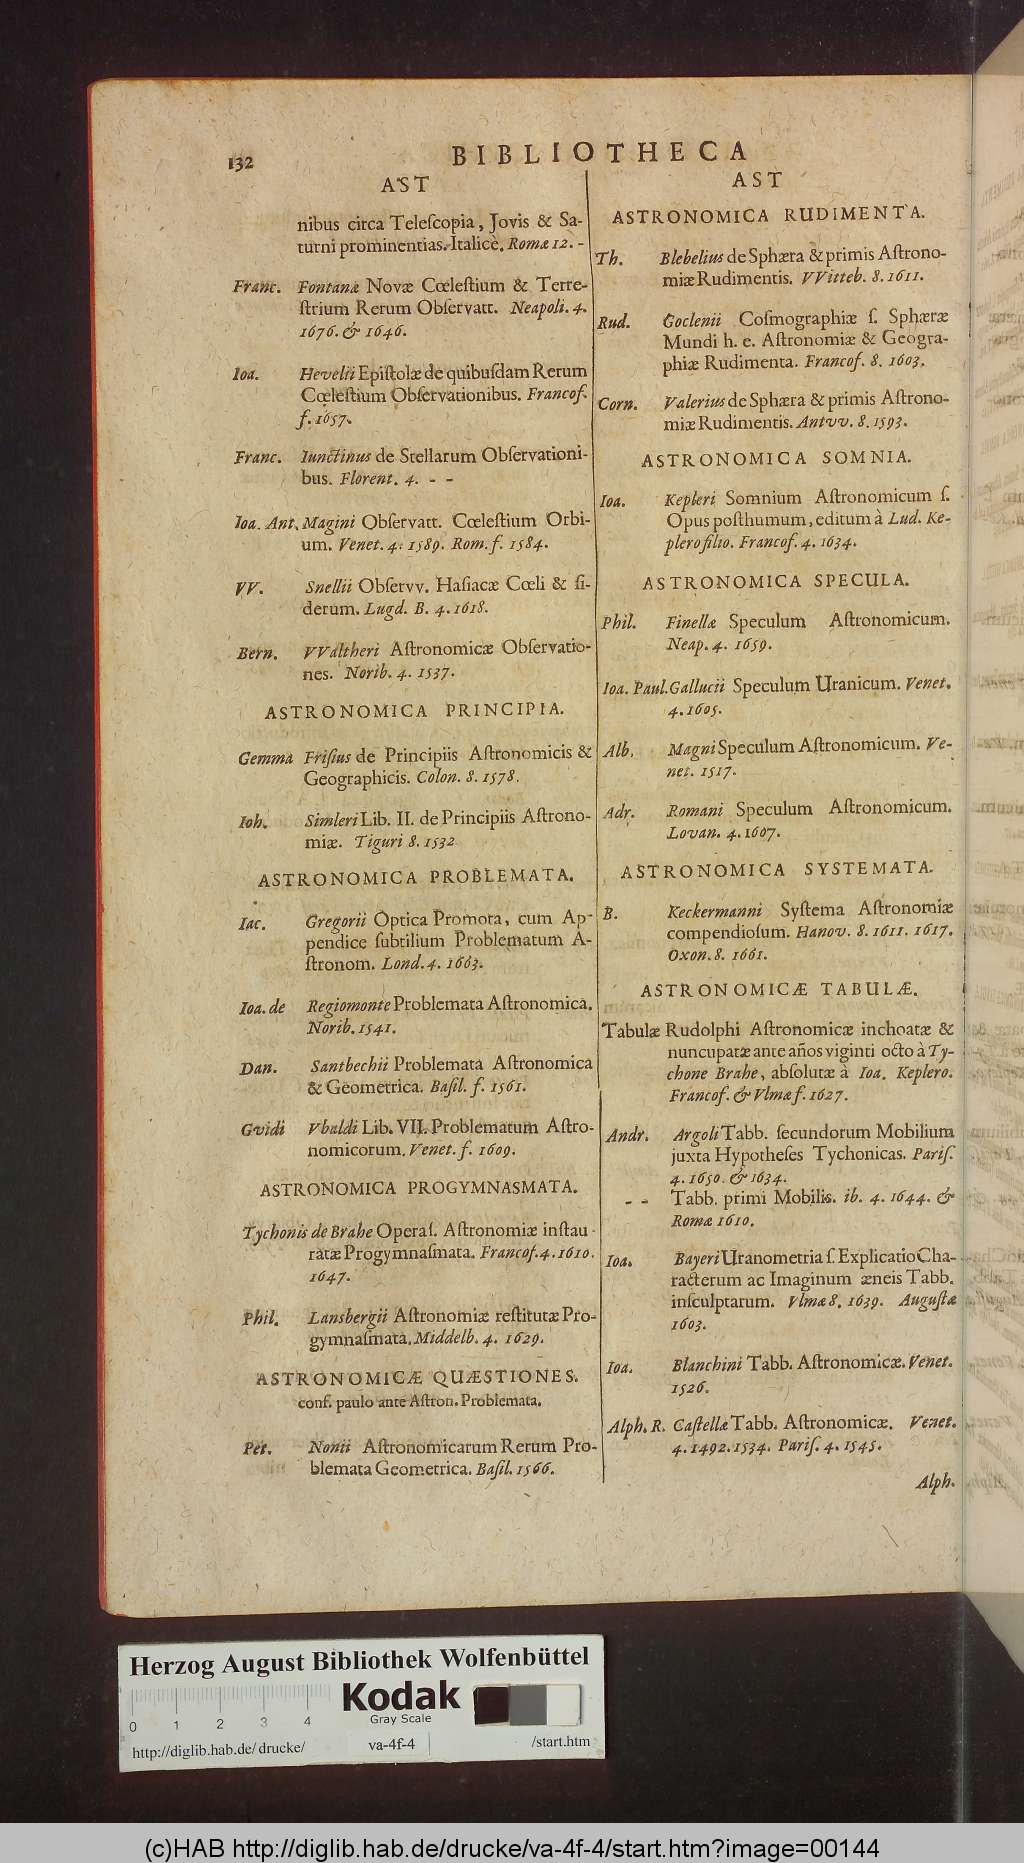 132
BIBLIOTHECA
AST
nibus circa Teleſcopia, Jovis & Sa-
turni prominentias. Italicè. Romæ 12. -
Franc. Fontanæ Novæ Cœleſtium & Terre-
ſtrium Rerum Obſervatt. Neapoli. 4.
1676. & 1646.
Ioa. Hevelii Epiſtolæ de quibuſdam Rerum
Cœleſtium Obſervationibus. Francof.
f. 1657.
Franc. Iunctinus de Stellarum Obſervationi-
bus. Florent. 4. - -
Ioa. Ant. Magini Obſervatt. Cœleſtium Orbi-
um. Venet. 4. 1589. Rom. f. 1584.
VV. Snellii Obſervv. Haſiacæ Cœli & ſi-
derum. Lugd. B. 4. 1618.
Bern. VValtheri Aſtronomicæ Obſervatio-
nes. Norib. 4. 1537.
ASTRONOMICA PRINCIPIA.
Gemma Friſius de Principiis Aſtronomicis &
Geographicis. Colon. 8. 1578.
Ioh. Simleri Lib. II. de Principiis Aſtrono-
miæ. Tiguri 8. 1532
ASTRONOMICA PROBLEMATA.
Iac. Gregorii Optica Promota, cum Ap-
pendice ſubtilium Problematum A-
ſtronom. Lond. 4. 1663.
Ioa. de Regiomonte Problemata Aſtronomica.
Norib. 1541.
Dan. Santbechii Problemata Aſtronomica
& Geometrica. Baſil. f. 1561.
Gvidi Vbaldi Lib. VII. Problematum Aſtro-
nomicorum. Venet. f. 1609.
ASTRONOMICA PROGYMNASMATA.
Tychonis de Brahe Opera ſ. Aſtronomiæ inſtau-
ratæ Progymnaſmata. Francof. 4. 1610.
1647.
Phil. Lansbergii Aſtronomiæ reſtitutæ Pro-
gymnaſmata. Middelb. 4. 1629.
ASTRONOMICÆ QUÆSTIONES.
conf. paulo ante Aſtron. Problemata.
Pet. Nonii Aſtronomicarum Rerum Pro-
blemata Geometrica. Baſil. 1566.
AST
ASTRONOMICA RUDIMENTA.
Th. Blebelius de Sphæra & primis Aſtrono-
miæ Rudimentis. VVitteb. 8. 1611.
Rud. Goclenii Coſmographiæ ſ. Sphæræ
Mundi h. e. Aſtronomiæ & Geogra-
phiæ Rudimenta. Francof. 8. 1603.
Corn. Valerius de Sphæra & primis Aſtrono-
miæ Rudimentis. Antvv. 8. 1593.
ASTRONOMICA SOMNIA.
Ioa. Kepleri Somnium Aſtronomicum ſ.
Opus poſthumum, editum à Lud. Ke-
plero filio. Francof. 4. 1634.
ASTRONOMICA SPECULA.
Phil. Finellæ Speculum Aſtronomicum.
Neap. 4. 1659.
Ioa. Paul. Gallucii Speculum Uranicum. Venet.
4. 1605.
Alb. Magni Speculum Aſtronomicum. Ve-
net. 1517.
Adr. Romani Speculum Aſtronomicum.
Lovan. 4. 1607.
ASTRONOMICA SYSTEMATA.
B. Keckermanni Syſtema Aſtronomiæ
compendioſum. Hanov. 8. 1611. 1617.
Oxon. 8. 1661.
ASTRONOMICÆ TABULÆ.
Tabulæ Rudolphi Aſtronomicæ inchoatæ &
nuncupatæ ante años viginti octo à Ty-
chone Brahe, abſolutæ à Ioa. Keplero.
Francof. & Vlmæ f. 1627.
Andr. Argoli Tabb. ſecundorum Mobilium
juxta Hypotheſes Tychonicas. Pariſ.
4. 1650. & 1634.
- - Tabb. primi Mobilis. ib. 4. 1644. &
Romæ 1610.
Ioa. Bayeri Uranometria ſ. Explicatio Cha-
racterum ac Imaginum æneis Tabb.
inſculptarum. Vlmæ 8. 1639. Auguſtæ
1603.
Ioa. Blanchini Tabb. Aſtronomicæ. Venet.
1526.
Alph. R. Caſtellæ Tabb. Aſtronomicæ. Venet.
4. 1492. 1534. Pariſ. 4. 1545.
Alph.
Herzog August Bibliothek Wolfenbüttel
Kodak
Gray Scale
0 1 2 3 4
http://diglib.hab.de/drucke/ va-4f-4 /start.htm
(c)HAB http://diglib.hab.de/drucke/va-4f-4/start.htm?image=00144